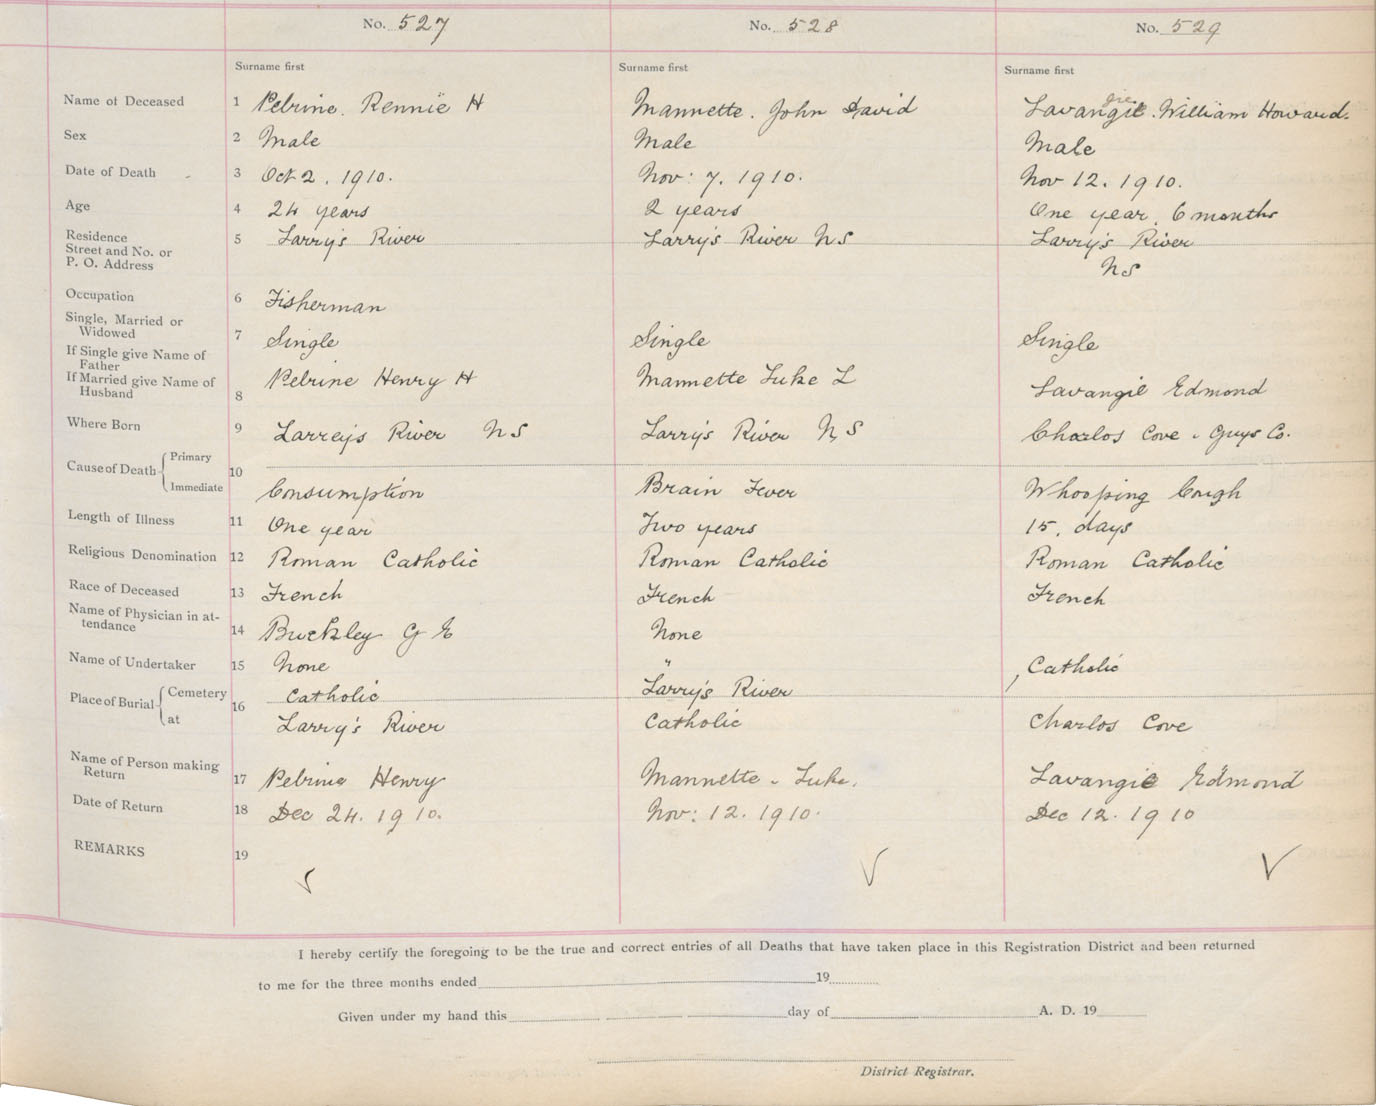 No. 527 No. 528 No. 529
Surname first Surname first Surname first
Name of Deceased 1 Pelrine. Rennie H Mannette. John David Lavangie. William Howard.
gie
Sex 2 Male Male Male
Date of Death 3 Oct 2. 1910. Nov: 7. 1910. Nov 12. 1910.
Age 4 24 years 2 years One year. 6 months
Residence
Street and No. or
P. O. Address 5 Larry's River Larry's River NS Larry's River
NS
Occupation 6 Fisherman
Single, Married or
Widowed 7 Single Single Single
If Single give Name of
Father
If Married give Name of
Husband 8 Pelrine Henry H Mannette Luke L Lavangie Edmond
Where Born 9 Larrey's River NS Larry's River N, S Charlos Cove - Guys Co.
Cause of Death Primary
Immediate 10 Consumption Brain Fever Whooping Cough
Length of Illness 11 One year Two years 15. days
Religious Denomination 12 Roman Catholic Roman Catholic Roman Catholic
Race of Deceased 13 French French French
Name of Physician in at-
tendance 14 Buckley G E None
Name of Undertaker 15 None " Catholic
Place of Burial Cemetery 16 Catholic Larry's River
at Larry's River Catholic Charlos Cove
Name of Person making
Return 17 Pelrine Henry Mannette - Luke. Lavangie Edmond
Date of Return 18 Dec 24. 1910. Nov: 12. 1910. Dec 12. 1910
REMARKS 19
I hereby certify the foregoing to be the true and correct entries of all Deaths that have taken place in this Registration District and been returned
to me for the three months ended 19
Given under my hand this day of A. D. 19
District Registrar.